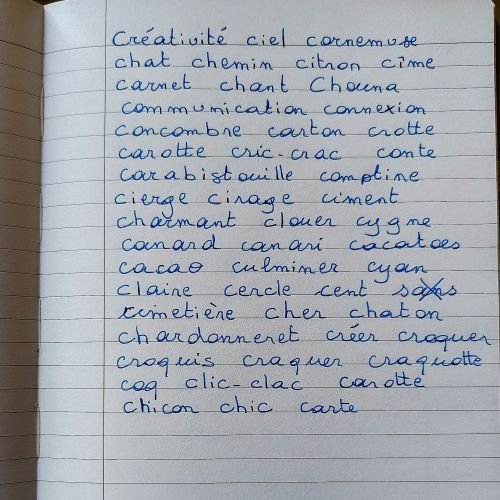 Créativité ciel cornemuse
chat chemin citron cîme
carnet chant Chouna
communication connexion
concombre carton crotte
carotte cric-crac conte
carabistouille comptine
cierge cirage ciment
charmant clouer cygne
canard canari cacatoes
cacao culminer cyan
claire cercle cent
cimetière cher chaton
chardonneret créer croquer
croquis craquer craquotte
coq clic-clac carotte
chicon chic carte